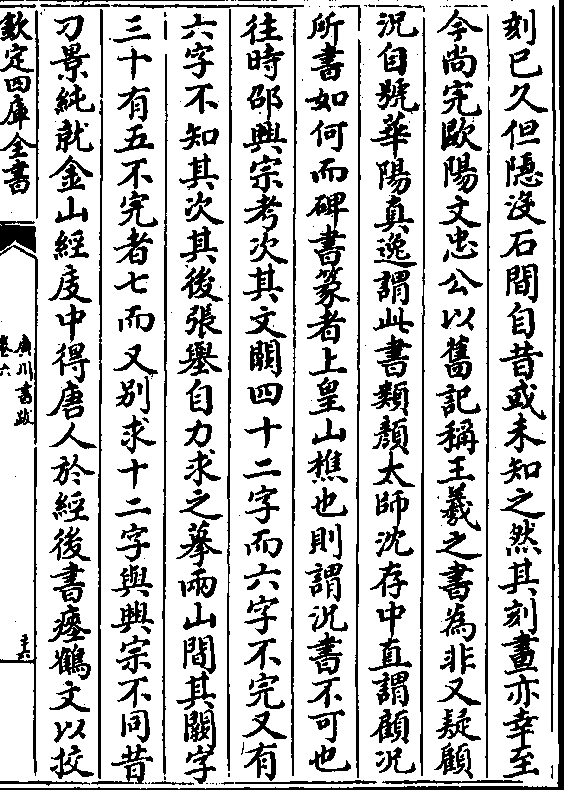 刻已久但隱沒石間自昔或未知之然其刻畫亦幸至
今尚完歐陽文忠公以舊記稱王羲之書為非又疑顧
況自號華陽真逸謂此書類顏太師沈存中直謂顧況
所書如何而碑書篆者上皇山樵也則謂況書不可也
往時邵興宗考次其文闕四十二字而六字不完又有
六字不知其次其後張壆自力求之摹兩山間其闕字
三十有五不完者七而又別求十二字與興宗不同昔
刁景純就金山經庋中得唐人於經後書瘞鶴文以挍
欽定四庫全書
廣川書跋
卷六